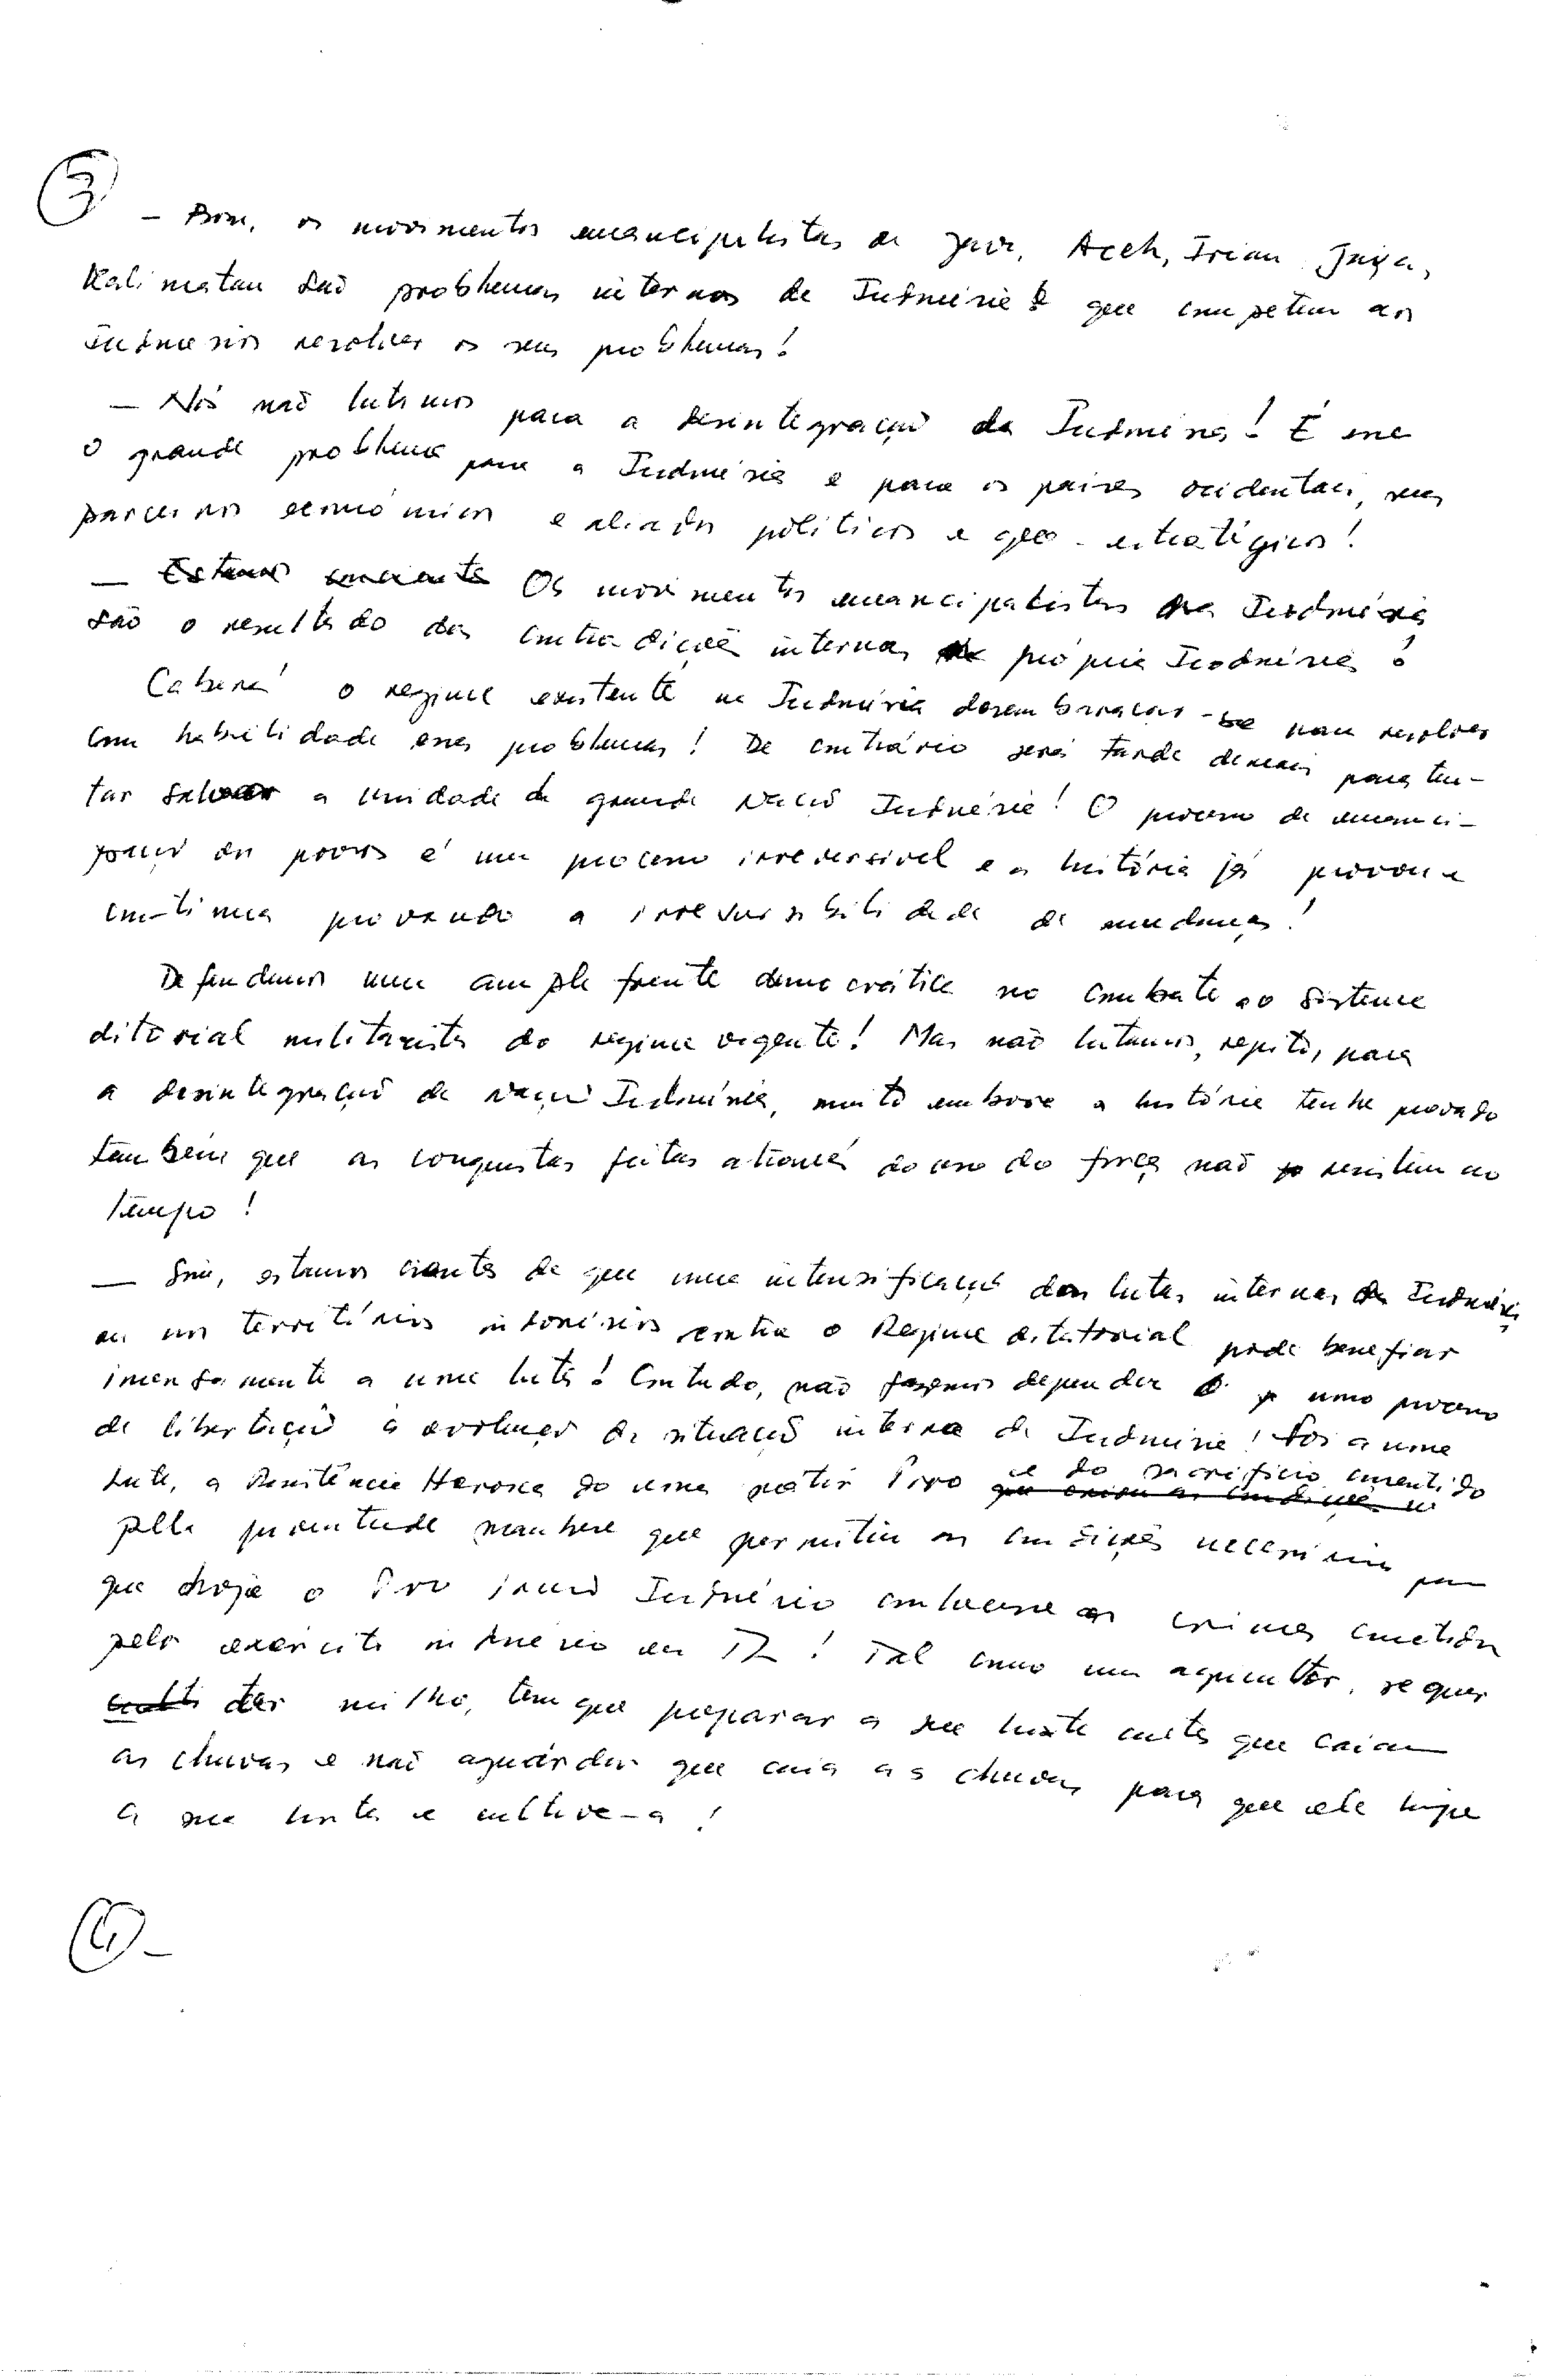 3
- Bom, os movimentos emancipalistas de Java, Aceh, Irian Jaya,
Kalimatan são problemas internos da Indonésia e que competem aos
indonésios resolver os seus problemas!
- Nós não lutamos para a desintegração da Indonésia! É esse
o grande problema para a Indonésia e para os países ocidentais, seus
parceiros económicos e aliados políticos e geo-estratégicos!
- Estamos consciente Os movimentos emancipalistas na Indonésia
são o resultado das contradições internas da própria Indonésia!
Caberá o regime existente na Indonésia desembaraçar-se para resolver
com habilidade esses problemas! De contrário será tarde demais para ten-
tar salvar a unidade da grande Nação Indonésia! O processo de emanci-
pação dos povos é um processo irreversível e a história já provou e
continua provando a irreversibilidade de mudanças!
Defendemos uma ampla frente democrática no combate ao sistema
ditorial militarista do regime vigente! Mas não lutamos, repito, para
a desintegração da Nação Indonésia, muito embora a história tenha provado
também que as conquistas feitas através do uso da força não resistem ao
tempo!
- Sim, estamos cientes de que uma intensificação das lutas internas da Indonésia
ou nos territórios indonésios contra o Regime ditatorial pode benefiar
imensamente a nossa luta! Contudo, não fazemos depender o nosso processo
de libertação à evolução da situação interna da Indonésia! Foi a nossa
luta, a Resistência Heroica do nosso Povo e do sacrifício consentido
que criou as condições
pela juventude maubere que permitiu as condições necessárias para
que hoje o Povo irmão Indonésio conhecesse os crimes cometidos
pelo exército indonésio em TL! Tal como um agricultor, se quer
ter milho, tem que preparar a sua horta antes que caiam
as chuvas e não aguardar que caia as chuvas para que ele limpe
a sua horta e cultive-a!
4-